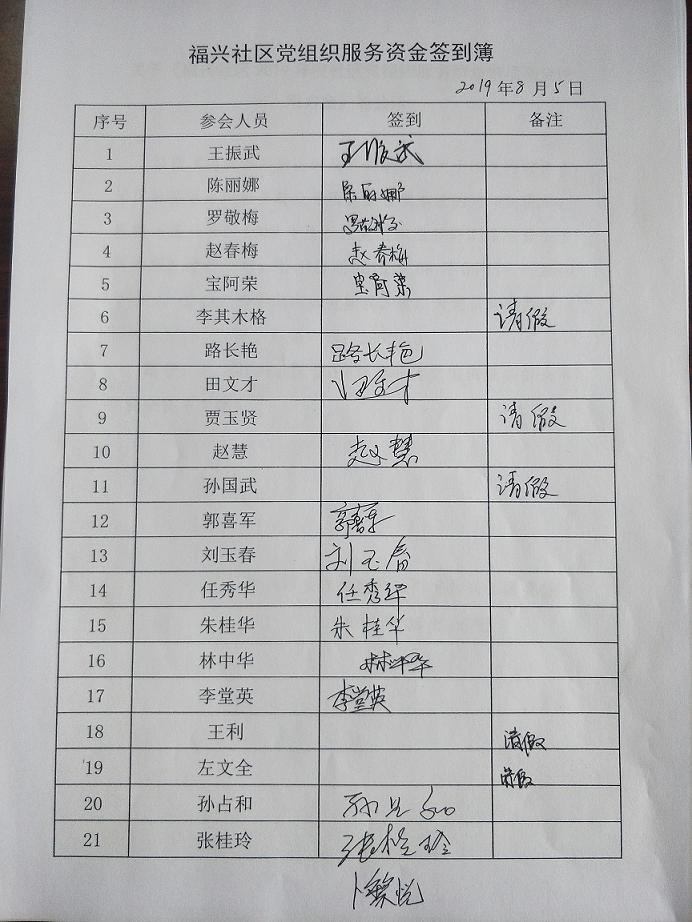 福兴社区党组织服务资金签到簿
2019年8月5日
序号 参会人员 签到 备注
1 王振武 王振武
2 陈丽娜 陈丽娜
3 罗敬梅
4 赵春梅 赵春梅
5 宝阿荣 宝阿荣
6 李其木格 请假
7 路长艳 路长艳
8 田文才 田文才
9 贾玉贤 请假
10 赵慧 赵慧
11 孙国武 请假
12 郭喜军 郭喜军
13 刘玉春 刘玉春
14 任秀华 任秀华
15 朱桂华 朱桂华
16 林中华 林中华
17 李堂英 李堂英
18 王利 请假
19 左文全 请假
20 孙占和 孙占和
21 张桂玲 张桂玲